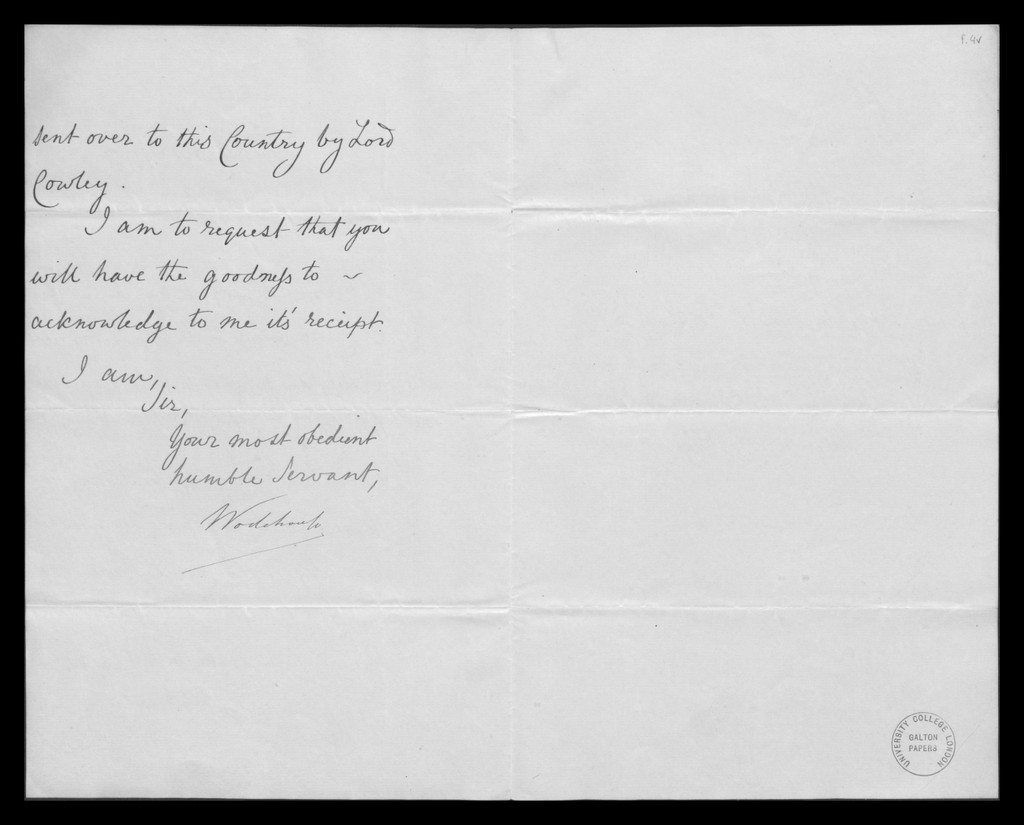 sent over to this Country by Lord
Cowley.
I am to request that you
will have the goodness to ~
acknowledge to me it's receipt.
I am,
Sir,
Your most obedient
humble Servant,
Wodehouse
f.9v
UNIVERSITY COLLEGE LONDON
GALTON
PAPERS